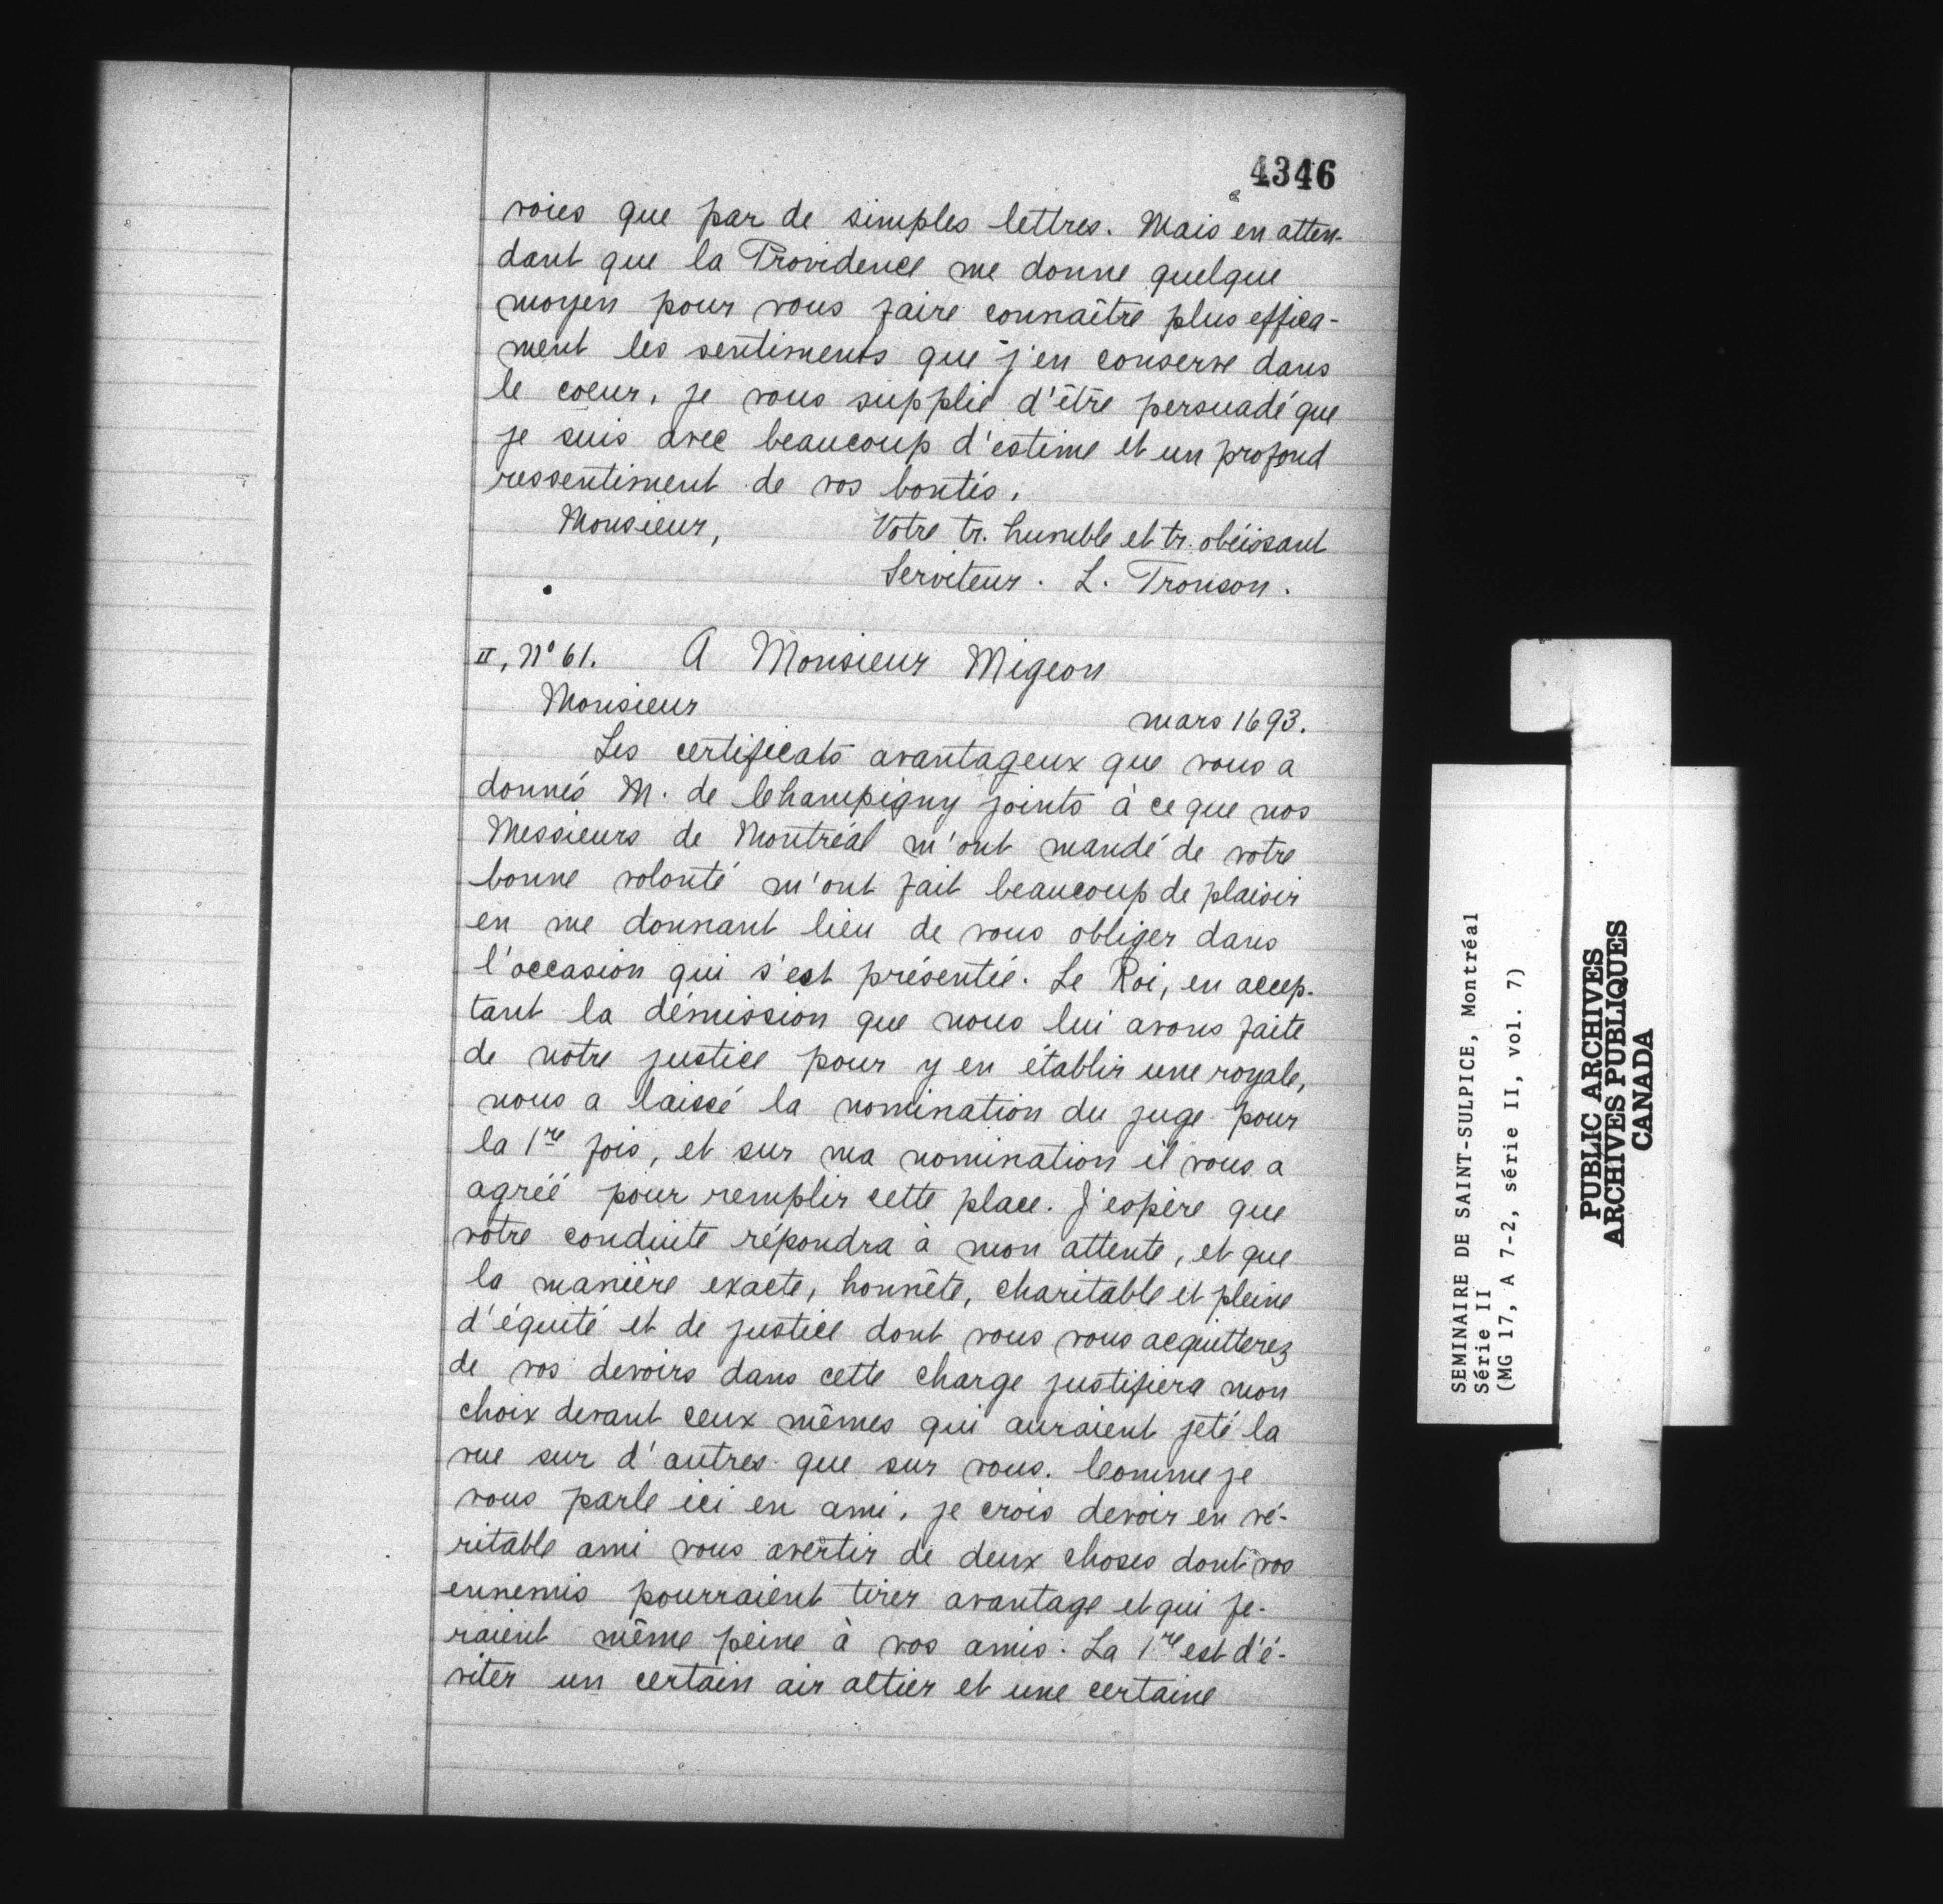 4346
voies que par de simples lettres. Mais en atten-
dant que la Providence me donne quelque
moyen pour vous faire connaître plus effica-
ment les sentiments que j'en conserve dans
le coeur, je vous supplie d'être persuadé que
je suis avec beaucoup d'estime et un profond
ressentiment de vos bontés,
Monsieur, Votre tr. humble et tr. obéissant
Serviteur. L. Tronson.
II, N° 61. A Monsieur Migeon
Monsieur
mars 1693.
Les certificats avantageux que vous a
donnés M. de Champigny joints à ce que nos
Messieurs de Montréal m'ont mandé de votre
bonne volonté m'ont fait beaucoup de plaisir
en me donnant lieu de vous obliger dans
l'occasion qui s'est présentée. Le Roi, en accep-
tant la démission que nous lui avons faite
de notre justice pour y en établir une royale,
nous a laissé la nomination du juge pour
la 1re fois, et sur ma nomination il vous a
agréé pour remplir cette place. J'espère que
votre conduite répondra à mon attente, et que
la manière exacte, honnête, charitable et pleine
d'équité et de justice dont vous vous acquitterez
de vos devoirs dans cette charge justifiera mon
choix devant ceux mêmes qui auraient jeté la
vue sur d'autres que sur vous. Comme je
vous parle ici en ami, je crois devoir en vé-
ritable ami vous avertir de deux choses dont vos
ennemis pourraient tirer avantage et qui fe-
raient même peine à vos amis. La 1re est d'é-
viter un certain air altier et une certaine
SEMINAIRE DE SAINT-SULPICE, Montréal
Série II
(MG 17, A 7-2, série II, vol. 7)
PUBLIC ARCHIVES
ARCHIVES PUBLIQUES
CANADA